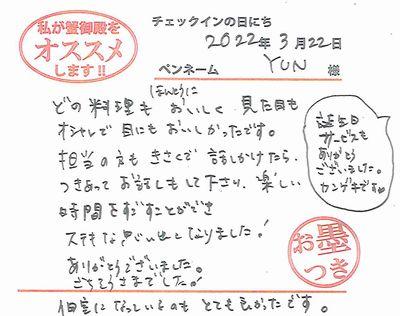 私が蟹御殿を
オススメ
します!!
チェックインの日にち
2022年3月22日
ペンネーム YUN 様
ほんとうに
どの料理も おいしく 見た目も
オシャレで目にもおいしかったです。
担当の方も きさくで 話しかけたら、
つきあって お話しもして下さり、楽しい
時間をすごすことができ
ステキな思い出となりました!
ありがとうございました。
ごちそうさまでした!
個室になっているのも とても良かったです。
誕生日
サービスも
ありがとう
ございました。
カンゲキです
お墨
つき